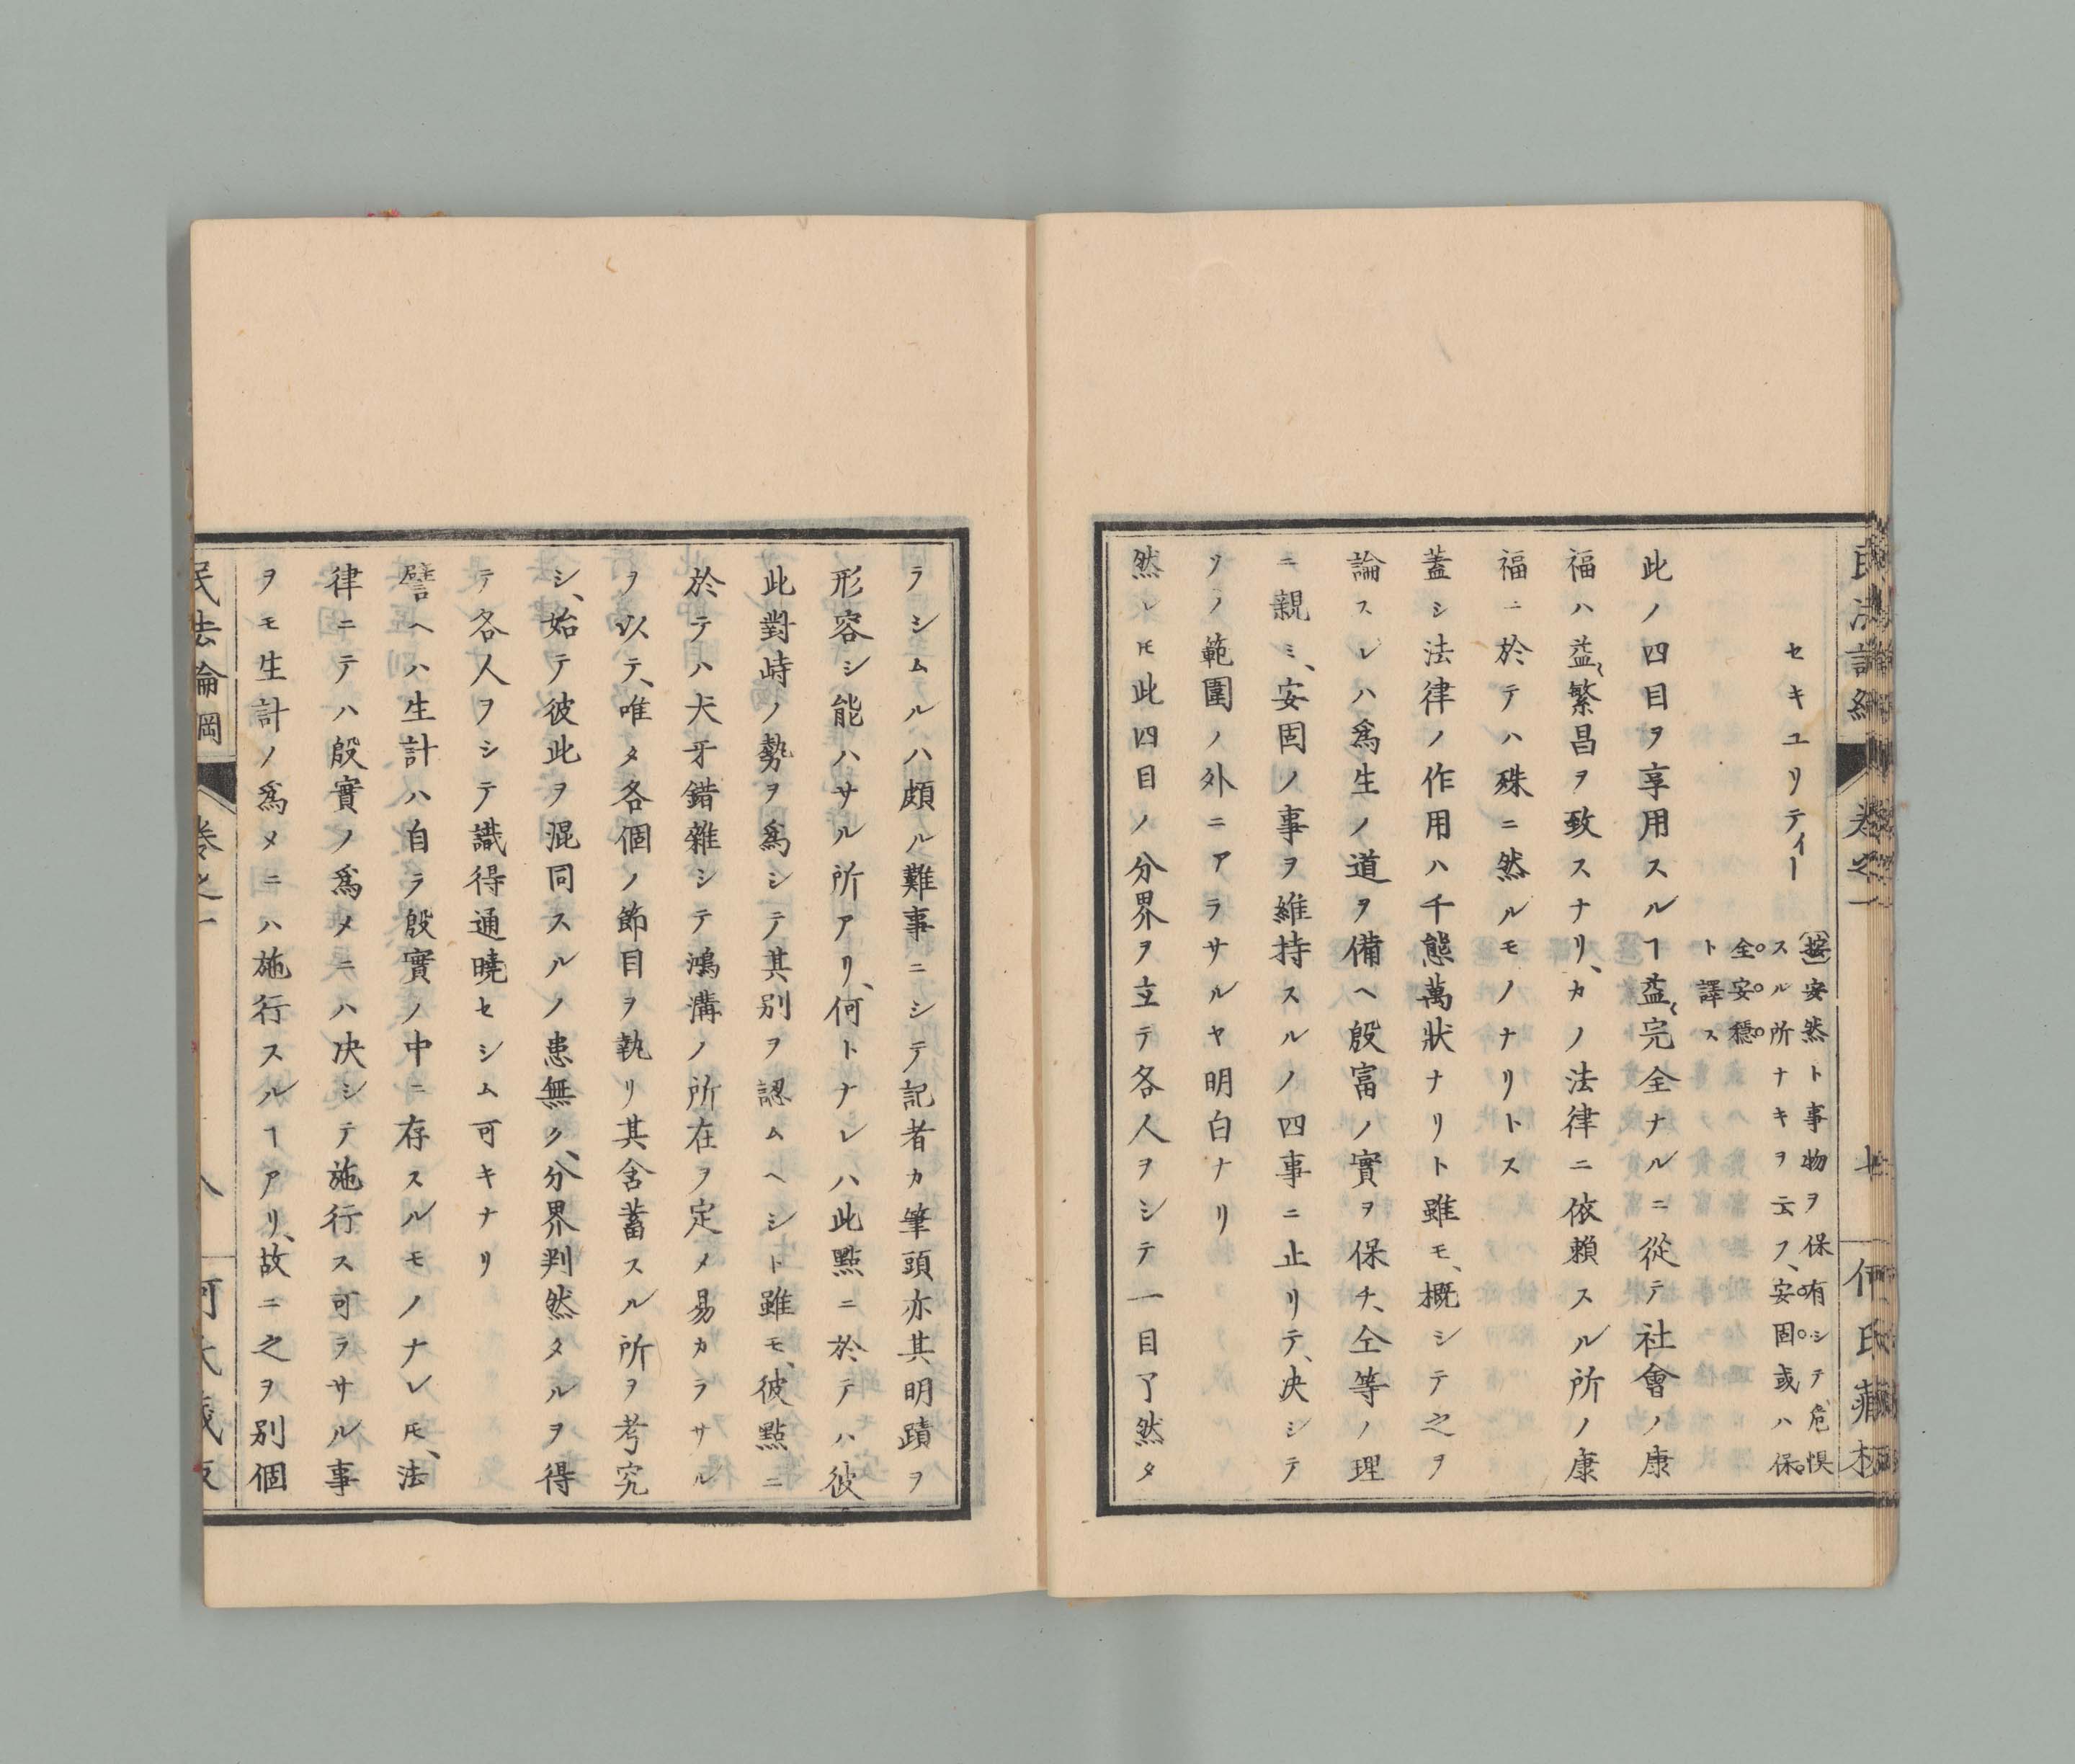 セキユリティー
(按)安然ト事物ヲ保有シテ危惧
スル所ナキヲ云フ、安固或ハ保
全安穏
ト譯ス
此ノ四目ヲ享用スルヿ益〻完全ナルニ從テ社會ノ康
福ハ益〻繁昌ヲ致スナリ、カノ法律ニ依賴スル所ノ康
福ニ於テハ殊ニ然ルモノナリトス
蓋シ法律ノ作用ハ千態萬狀ナリト雖モ、概シテ之ヲ
論スレハ爲生ノ道ヲ備ヘ殷富ノ實ヲ保チ、仝等ノ理
ニ親ミ、安固ノ事ヲ維持スルノ四事ニ止リテ、决シテ
ソノ範圍ノ外ニアラサルヤ明白ナリ
然レ𪜈此四目ノ分界ヲ立テ各人ヲシテ一目了然タ
ラシムルハ頗ル難事ニシテ記者カ筆頭亦其明蹟ヲ
形容シ能ハサル所アリ、何トナレハ此點ニ於テハ彼
此對峙ノ勢ヲ爲シテ其別ヲ認ムヘシト雖モ、彼點ニ
於テハ犬牙錯雜シテ鴻溝ノ所在ヲ定メ易カラサル
ヲ以テ、唯タ各個ノ節目ヲ執リ其含蓄スル所ヲ考究
シ、始テ彼此ヲ混同スルノ患無ク、分界判然タルヲ得
テ各人ヲシテ識得通曉セシム可キナリ
譬ヘハ生計ハ自ラ殷實ノ中ニ存スルモノナレ𪜈、法
律ニテハ殷實ノ爲メニハ决シテ施行ス可ラサル事
ヲモ生計ノ爲メニハ施行スルヿアリ、故ニ之ヲ別個
民法論綱
卷之一
八
何氏藏板